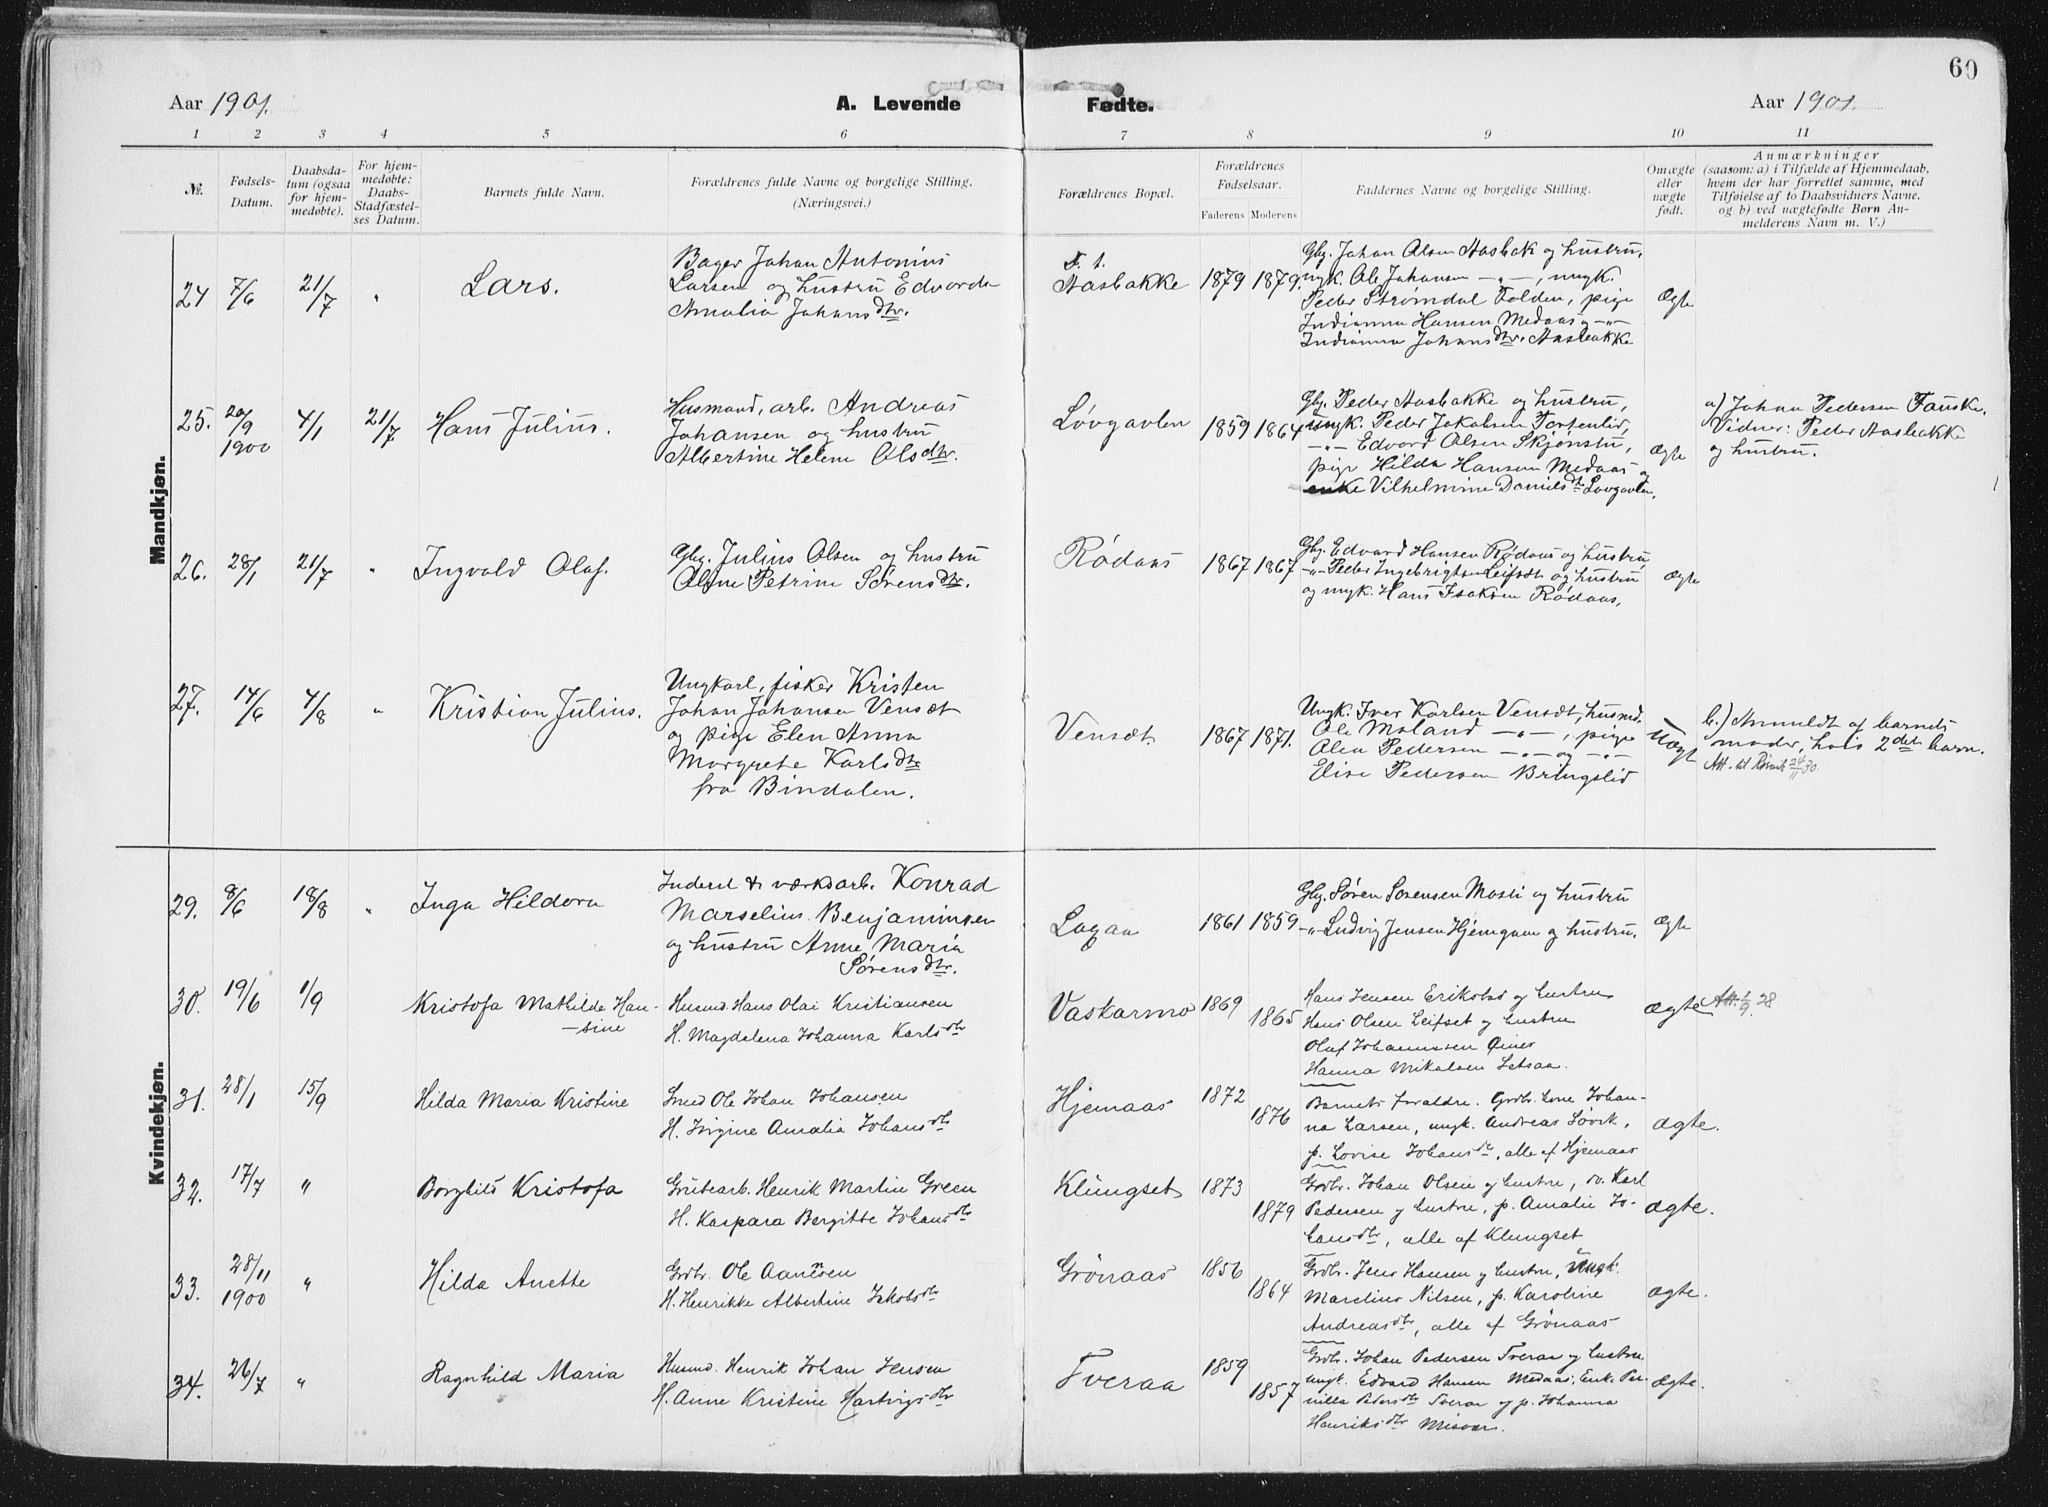 60
Aar 1901.
A. Levende
Fødte.
Aar 1901.
1 2 3 4 5 6 7 8 9 10 11
№.
Fødsels-
Datum.
Daabsda-
tum (ogsaa
for hjem-
medøbte).
For hjem-
medøbte:
Daabs-
Stadfæstel-
ses Datum.
Barnets fulde Navn.
Forældrenes fulde Navne og borgelige Stilling.
(Næringsvei.)
Forældrenes Bopæl.
Forældrenes
Fødselsaar.
Faderens Moderens
Faddernes Navne og borgelige Stilling.
Omægte
eller
uægte
født.
Anmærkninger
(saasom: a) i Tilfælde af Hjemmedaab,
hvem der har forrettet samme, med
Tilføielse af to Daabsvidners Navne.
og b) ved uægtefødte Børn An-
melderens Navn m. V.)
Mandkjøn.
24 7/6 21/7 "
Lars.
Bager Johan Antonius
Larsen og hustru Edvarda
Amalia Johansdtr.
F. t.
Aasbakke
1879 1879.
Gbg. Johan Olsen Aasbak og hustru,
ungk. Ole Johansen -"-, ungk.
Peder Strømdal Folden, pige
Indianna Hansen Medaas og -"-
Indianna Johansdtr. Aasbakke
Ægte
25. 20/9 1900 4/1 21/7
Hans Julius.
Husmand, arb. Andreas
Johansen og hustru
Albertine Helene Olsdtr.
Løvgavlen
1859 1864
Gbg. Peder Aasbakke og hustru,
Ungk. Peder Jakobsen Tortenlid,
-"- Edvard Olsen Skjønstu,
pige Hilda Hansen Medaas og
enke Vilhelmine Danielsdtr Løvgavlen.
Ægte
a) Johan Pedersen Fauske.
Vidner: Peder Aasbakke
og hustru.
26. 28/1 21/7 "
Ingvald Olaf.
Gbg. Julius Olsen og hustru
Oline Petrine Sørensdtr.
Rødaas
1867 1867
Gbg. Edvard Hansen Rødaas og hustru,
-"- Peder Ingebrigtsen Leifsæt og hustru
og ungk. Hans Isaksen Rødaas.
Ægte
27. 14/6 4/8 "
Kristian Julius.
Ungkarl, fisker Kristen
Johan Johansen Vensæt
og pige Elen Anna
Margrete Karlsdtr
fra Bindalen.
Vensæt.
1867 1871.
Ungk. Iver Karlsen Vensæt, husmd.
Ole Moland -"-, pige
Alea Pedersen -"- og -"-
Elise Pedersen Bringslid
Uægt
b.) Anmeldt af barnets
moder, hvis 2det barn.
Att. til 24/11 30.
Kvindekjøn.
29. 8/6 18/8 "
Inga Hildora
Inderst & værksarb. Konrad
Marselius Benjaminsen
og hustru Anne Maria
Sørensdtr.
Lagaa
1861 1859
Gbg. Søren Sørensen Mosti og hustru
-"- Ludvig Jensen Hjemgam og hustru.
Ægte
30. 19/6 1/9
Kristofa Mathilde Han-
-sine
Husmd. Hans Olai Kristiansen
H. Magdalena Johanna Karlsdtr
Vaskarmo
1869
1865
Hans Jensen Erikstad og hustru
Hans Olsen Leifset og hustru
Olaf Johannessen Øines
Hanna Mikalsen Setsaa.
ægte
Att. 1/9 28
31. 28/1 15/9
Hilda Maria Kristine
Smed Ole Johan Johansen
H. Jørgine Amalia Johansdtr
Hjemaas
1872
1876
Barnets Foraldre. Grdbr. Lone Johan-
na Larsen, ungk. Andreas Løvik,
p. Lovise Johansdtr, alle af Hjemaas
ægte.
32. 17/7 "
Borghild Kristofa
Grubearb. Henrik Martin Green
H. Kaspara Bergitte Johansdtr
Klungset
1873
1879
Grdbr. Johan Olsen og hustru, do. Karl
Pedersen og hustru, p. Amalie Jo-
hansdtr, alle af Klungset
ægte.
33. 28/11 1900 "
Hilda Anette
Grdbr. Ole Aanesen
H. Henrikke Albertine Jakobsdtr
Grønaas
1856
1864
Grdbr. Jens Hansen og hustru, Ungk.
Marelius Nilsen, p. Karoline
Andreasdtr, alle af Grønaas
ægte.
34. 26/7 "
Ragnhild Maria
Husmd. Henrik Johan Jensen
H. Anne Kristine Hartvigsdtr
Tveraa
1859
1857
Grdbr. Johan Pedersen Tveraa og hustru,
ungk. Edvard Hansen Medaas, Enke Per-
nilla Pedersdtr Tveraa og p. Johanna
Henriksdtr Misvær.
ægte.